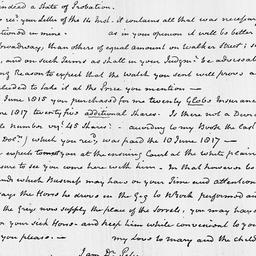 indeed a State of Probation.
recd. your letter of the 14 Inst. it contains all that was necessary
tioned in mine. as in your opinion it will be better
Broadway, than others of equal amount on Walker Street; s
, and on such Terms as shall in your Judgmt. be adviseabl
ing Reason to expect that the watch you sent will prove a
cluded to take it at the Price you mention —
June 1815 you purchased for me twenty Globe Insuran
une 1817 twenty five additional Shares. Is there not a Divi
le number vizt. 45 Shares? — according to my Book the last
Dolrs.) which you recd. was paid the 10 June 1817 —
expect to meet you at the ensuing Court at the White plains
sure to see you come here with him. In that however as
nds which Business may have on your Time and attention
ays the Horse he drove in the Gig to York performed
the Greys now supply the place of the Sorrels, you may have
or your sick Horse - and keep him while convenient to you
you please. — my Love to Mary and the child
I am Dr. Peter